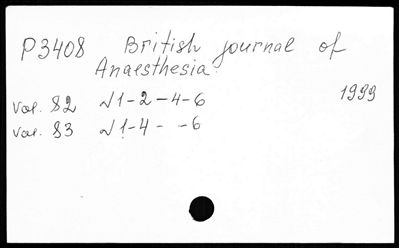 P3408 British journal of
Anaesthesia.
1999
Vol. 82 №1-2-4-6
Vol. 83 №1-4- -6